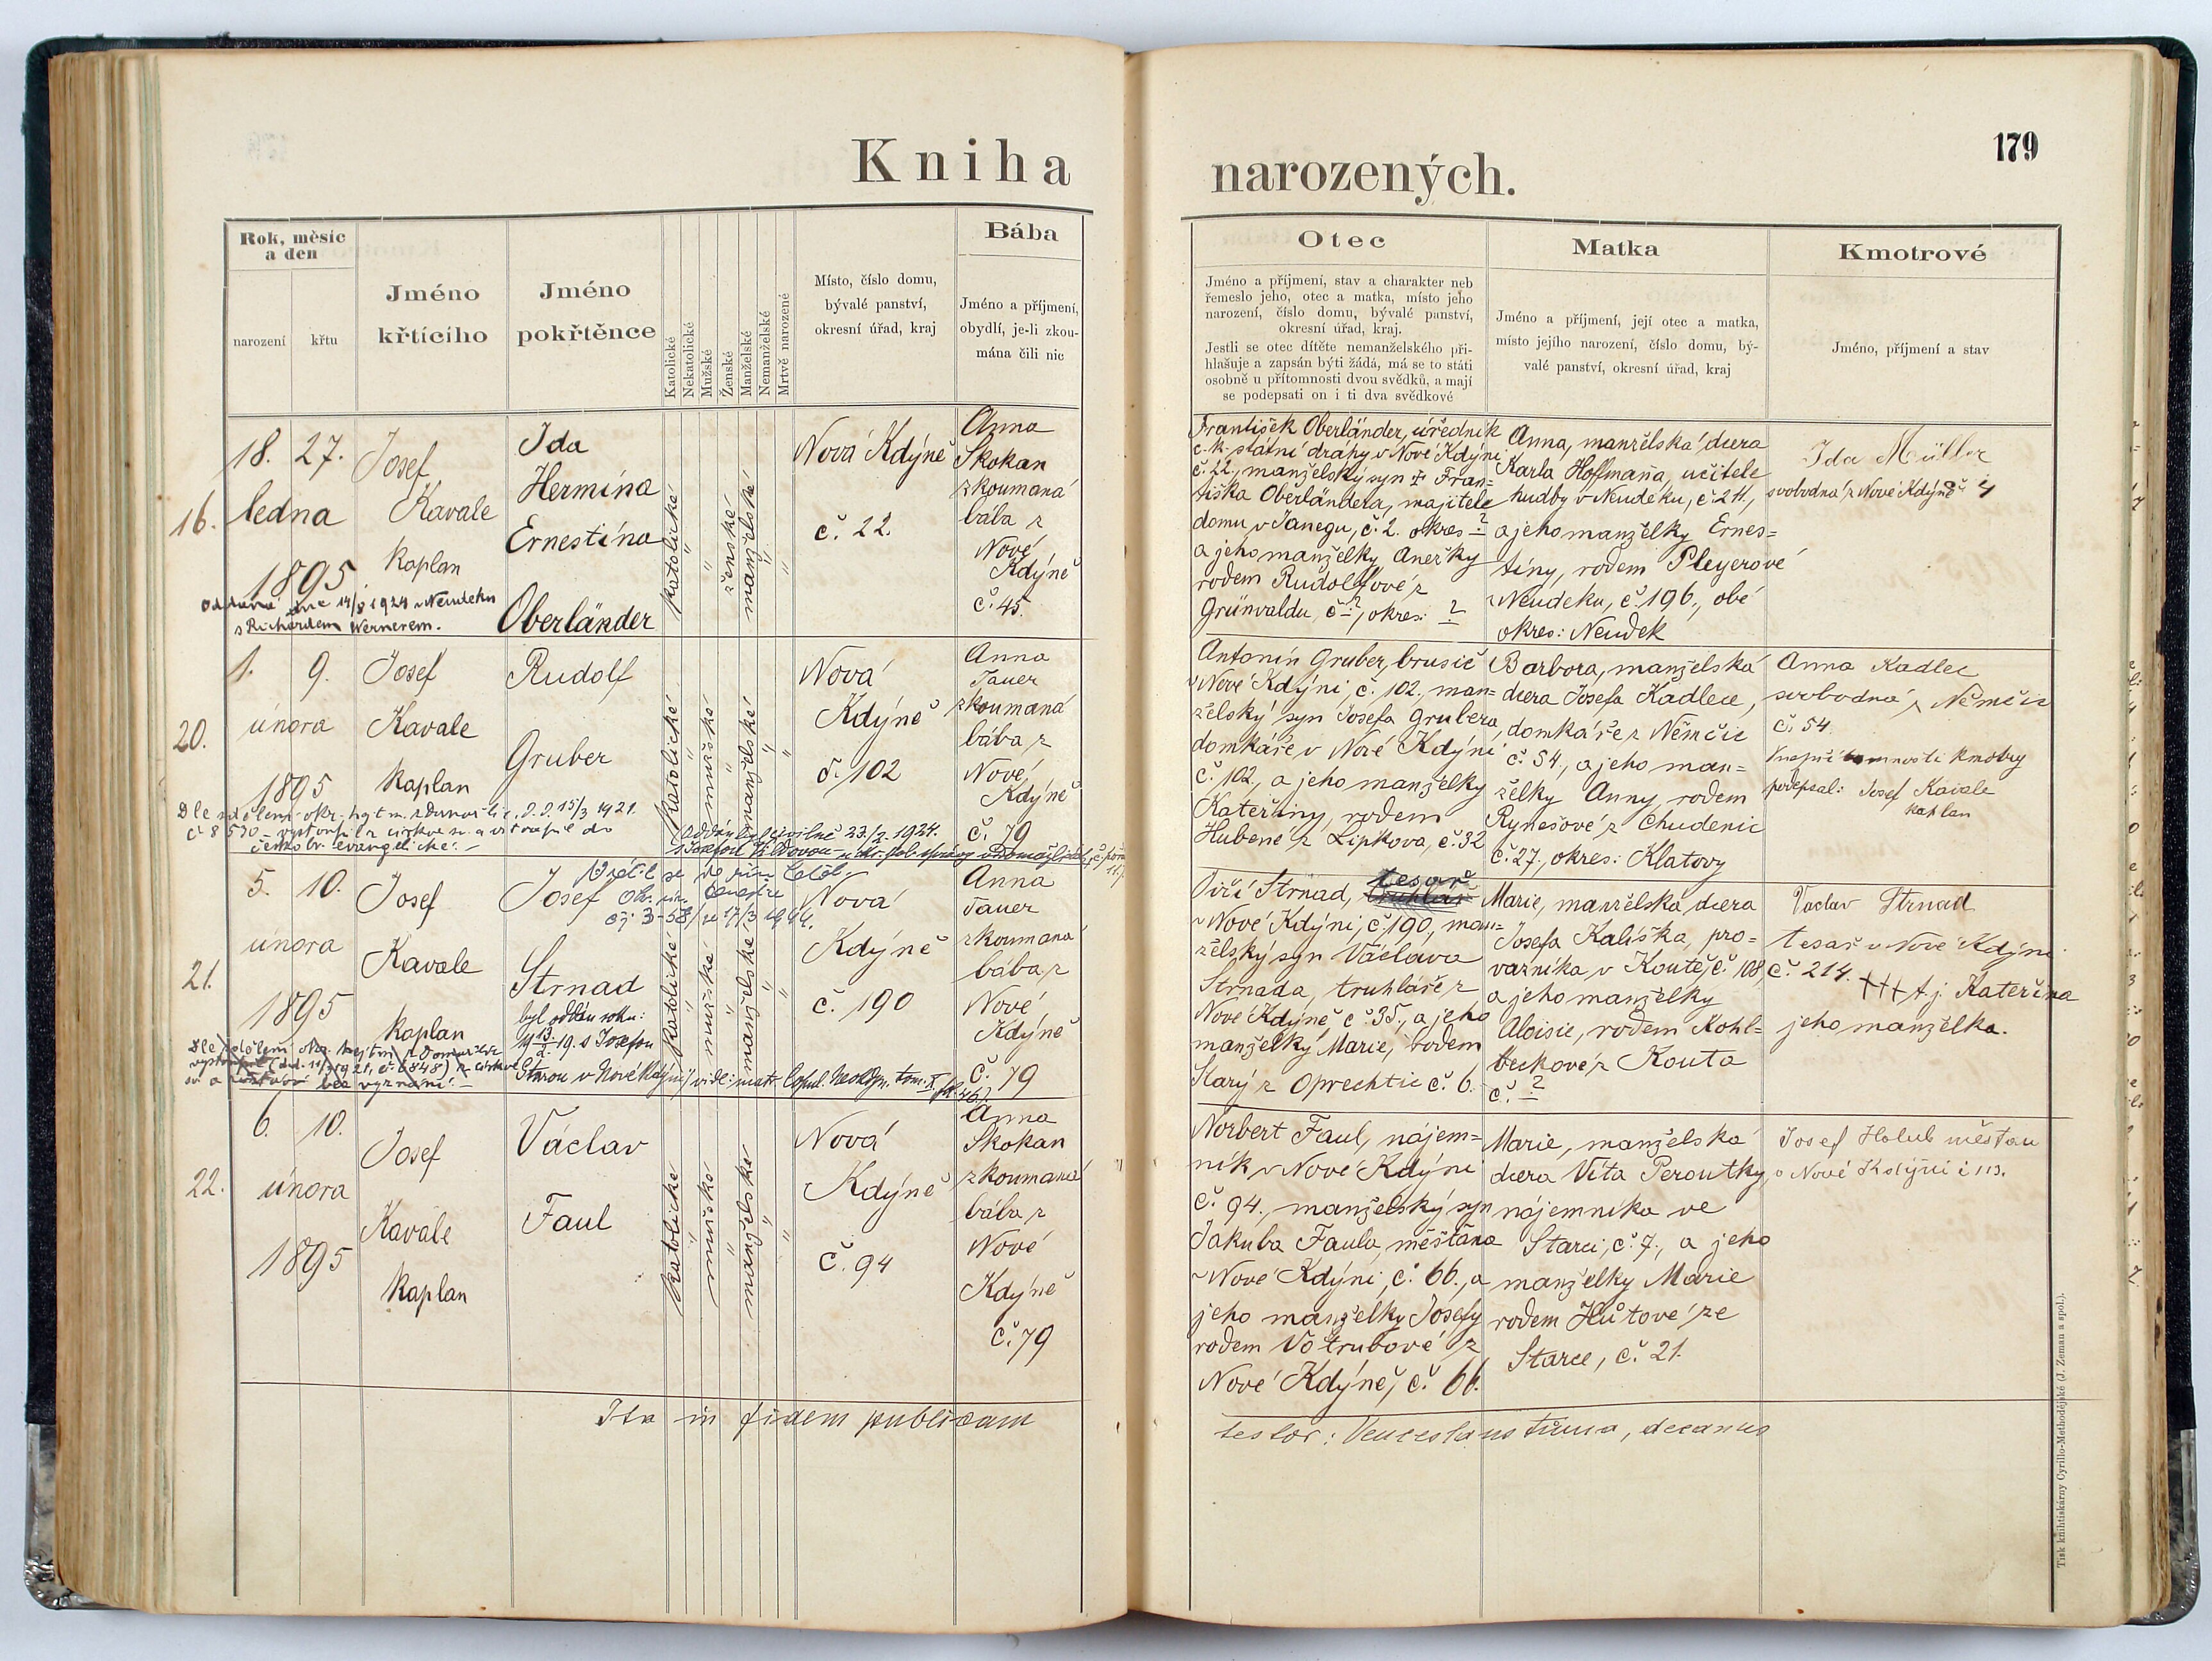 179
Kniha narozených.
Rok, měsíc
a den
narození
křtu
Jméno
křtícího
Jméno
pokřtěnce
Katolické
Nekatolické
Mužské
Ženské
Manželské
Nemanželské
Mrtvě narozené
Místo, číslo domu,
bývalé panství,
okresní úřad, kraj
Bába
Jméno a příjmení,
obydlí, je-li zkou-
mána čili nic
Otec
Jméno a příjmení, stav a charakter neb
řemeslo jeho, otec a matka, místo jeho
narození, číslo domu, bývalé panství,
okresní úřad, kraj.
Jestli se otec dítěte nemanželského při-
hlašuje a zapsán býti žádá, má se to státi
osobně u přítomnosti dvou svědků, a mají
se podepsati on i ti dva svědkové
Matka
Jméno a příjmení, její otec a matka,
místo jejího narození, číslo domu, bý-
valé panství, okresní úřad, kraj
Kmotrové
Jméno, příjmení a stav
16.
18. 27.
ledna
1895
Oddána dne 14/8 1924 v Neudeku
s Richardem Wernerem.
Josef
Kavale
kaplan
Ida
Hermína
Ernestína
Oberländer
katolické
"
"
ženské
manželské
"
"
Nová Kdýně
č. 22.
Anna
Skokan
zkoumaná
bába z
Nové
Kdýně
č. 45.
František Oberländer, úředník
c. k. státní dráhy v Nové Kdýni
č. 22., manželský syn † Fran=
tiška Oberländera, majitele
domu v Janegu, č. 2. okres ?
a jeho manželky Anežky
rodem Rudolfové z
Grünvaldu, č. ?, okres: ?
Anna, manželská dcera
Karla Hoffmana, učitele
hudby v Neudeku, č. 211.,
a jeho manželky Ernes=
tíny, rodem Pleyerové
z Neudeku, č. 196., obé
okres: Neudek
Ida Müller
svobodná z Nové Kdýně č. 4
20.
1. 9.
února
1895
Josef
Kavale
kaplan
Rudolf
Gruber
katolické
"
mužské
"
manželské
"
"
Nová
Kdýně
č. 102
Anna
Tauer
zkoumaná
bába z
Nové
Kdýně
č. 79
Dle sdělení okr. hejtm. z Domažlic d. d. 15/3 1921.
č. 8590 – vystoupil z církve ... a vstoupil do
českobr. evangelické. –
Oddán byl civilně 23/2. 1924.
Antonín Gruber, brusič
v Nové Kdýni, č. 102., man=
želský syn Josefa Grubera,
domkáře v Nové Kdýni
č. 102., a jeho manželky
Kateřiny, rodem
Hubené z Lipkova, č. 32
Barbora, manželská
dcera Josefa Kadlece,
domkáře z Němčic
č. 54, a jeho man=
želky Anny, rodem
Rynešové z Chudenic
č. 27., okres: Klatovy
Anna Kadlec
svobodná, z Němčic
č. 54.
V nepřítomnosti kmotry
podepsal: Josef Kavale
kaplan
21.
5. 10.
února
1895
Josef
Kavale
kaplan
Josef
Vrátil se do řím. katol.
čj. 3-58/ ze 17/3 1944.
Strnad
byl oddán roku:
19 13/2. 19. s Josefou
katolické
"
mužské
"
manželské
"
"
Nová
Kdýně
č. 190
Anna
Tauer
zkoumaná
bába z
Nové
Kdýně
č. 79
Jiří Strnad, truhlář tesař
v Nové Kdýni, č. 190, man=
želský syn Václava
Strnada, truhláře z
Nové Kdýně č. 35., a jeho
manželky Marie, rodem
Starý z Oprechtic č. 6.
Marie, manželská dcera
Josefa Kališka, pro=
vazníka v Koutě, č. 108,
a jeho manželky
Aloisie, rodem Kohl=
beckové z Kouta
č. ?
Václav Strnad
tesař v Nové Kdýni
č. 214. ††† t. j. Kateřina
jeho manželka.
22.
6. 10.
února
1895
Josef
Kavale
kaplan
Václav
Faul
katolické
"
mužské
"
manželské
"
"
Nová
Kdýně
č. 94
Anna
Skokan
zkoumaná
bába z
Nové
Kdýně
č. 79
Norbert Faul, nájem=
ník v Nové Kdýni
č. 94., manželský syn
Jakuba Faula, měšťana
v Nové Kdýni, č. 66., a
jeho manželky Josefy
rodem Votrubové z
Nové Kdýně, č. 66.
Marie, manželská
dcera Víta Peroutky,
nájemníka ve
Starci, č. 7., a jeho
manželky Marie
rodem Hůtové ze
Starce, č. 21.
Josef Holub měšťan
v Nové Kdýni č 113.
Ita in fidem publicam
testor: Venceslaus Tůma, decanus
Tisk knihtiskárny Cyrillo-Methodějské (J. Zeman a spol.).